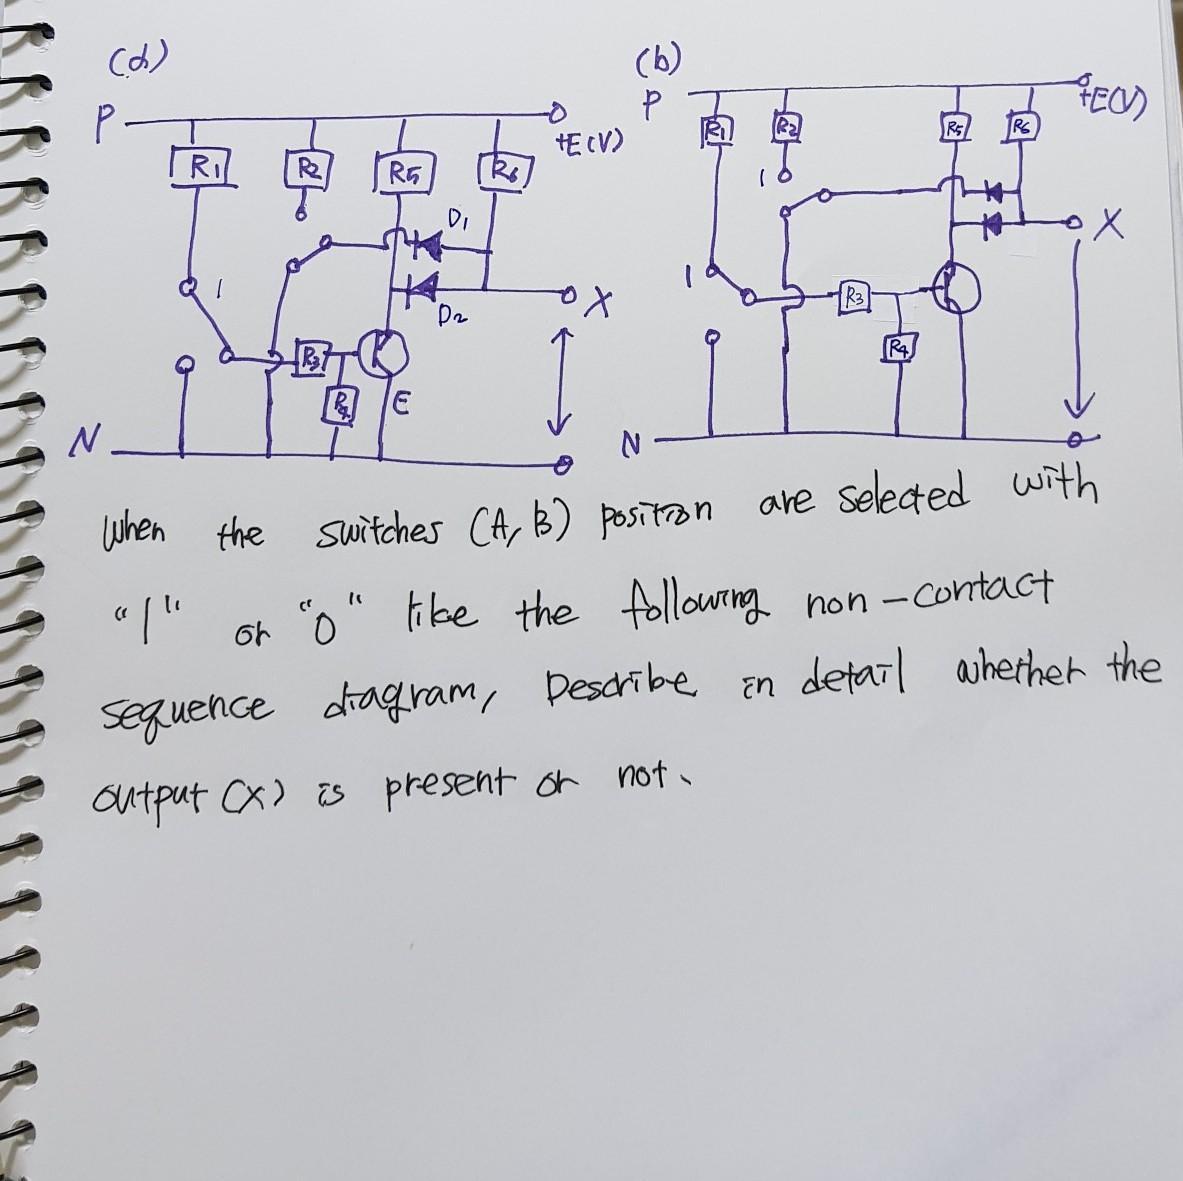 (a)
P
+E(V)
R1
R2
R5
R6
D1
1
D2
X
R3
R4
E
N
(b)
P
+E(V)
R1
R2
R5
R6
1
X
1
R3
R4
N
When the switches (A, B) position are selected with
"1" or "0" like the following non-contact
sequence diagram, Describe in detail whether the
output (X) is present or not.